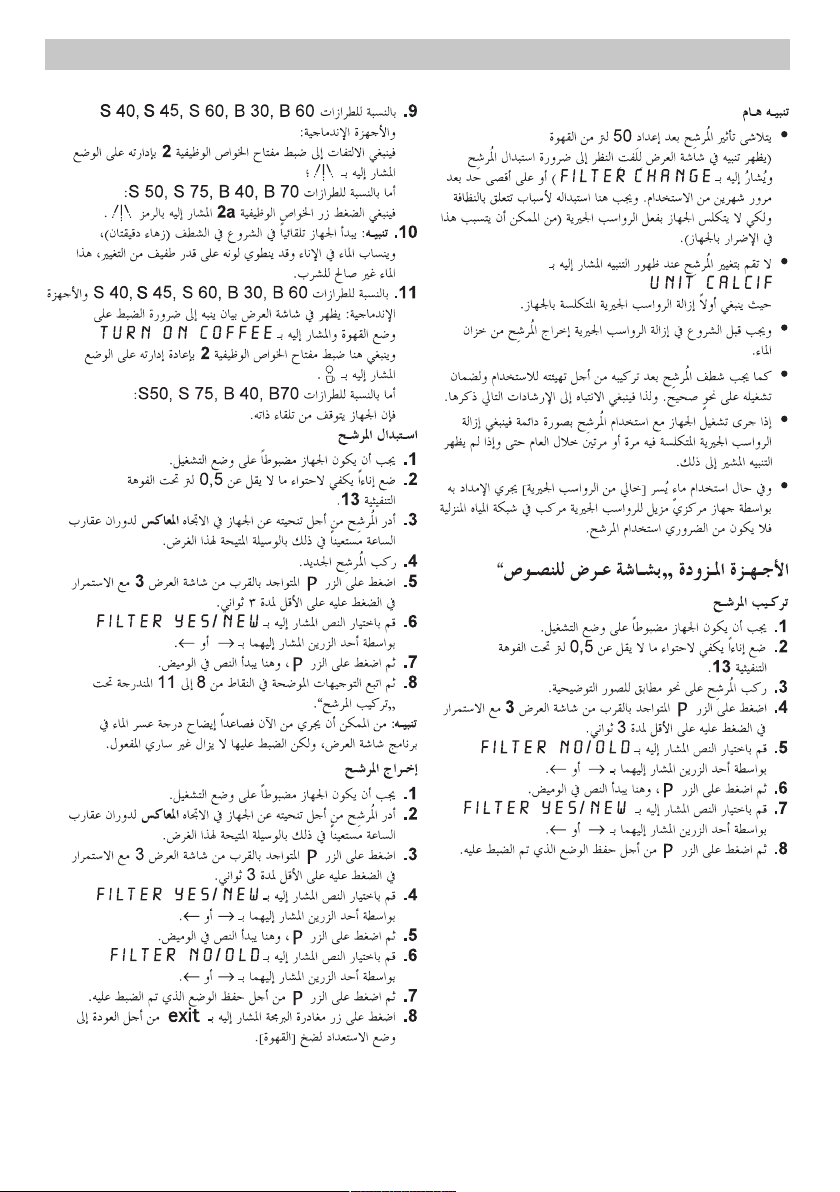 تنبيـه هـام
● يتلاشى تأثير المُرشِح بعد إعداد 50 لتر من القهوة
(يظهر تنبيه في شاشة العرض للَفت النظر إلى ضرورة استبدال المُرشِح
ويُشارُ إليه بـ FILTER CHANGE) أو على أقصى حد بعد
مرور شهرين من الاستخدام. ويجب هنا استبداله لأسباب تتعلق بالنظافة
ولكي لا يتكلس الجهاز بفعل الرواسب الجيرية (من الممكن أن يتسبب هذا
في الإضرار بالجهاز).
● لا تقم بتغيير المُرشِح عند ظهور التنبيه المشار إليه بـ
UNIT CALCIF
حيث ينبغي أولاً إزالة الرواسب الجيرية المتكلسة بالجهاز.
● ويجب قبل الشروع في إزالة الرواسب الجيرية إخراج المُرشِح من خزان
الماء.
● كما يجب شطف المُرشِح بعد تركيبه من أجل تهيئته للاستخدام ولضمان
تشغيله على نحوٍ صحيح. ولذا فينبغي الانتباه إلى الإرشادات التالي ذكرها.
● إذا جرى تشغيل الجهاز مع استخدام المُرشِح بصورة دائمة فينبغي إزالة
الرواسب الجيرية المتكلسة فيه مرة أو مرتين خلال العام حتى وإذا لم يظهر
التنبيه المشير إلى ذلك.
● وفي حال استخدام ماءٍ يُسر [خالي من الرواسب الجيرية] يجري الإمداد به
بواسطة جهاز مركزي مزيل للرواسب الجيرية مركب في شبكة المياه المنزلية
فلا يكون من الضروري استخدام المرشح.
الأجـهـزة المـزودة „بشـاشة عـرض للنصـوص“
تركـيب المرشـح
1. يجب أن يكون الجهاز مضبوطاً على وضع التشغيل.
2. ضع إناءاً يكفي لاحتواء ما لا يقل عن 0,5 لتر تحت الفوهة
التنفيثية 13.
3. ركب المُرشِح على نحو مطابق للصور التوضيحية.
4. اضغط على الزر P المتواجد بالقرب من شاشة العرض 3 مع الاستمرار
في الضغط عليه على الأقل لمدة 3 ثواني.
5. قم باختيار النص المشار إليه بـ FILTER NO/OLD
بواسطة أحد الزرين المشار إليهما بـ → أو ←.
6. ثم اضغط على الزر P، وهنا يبدأ النص في الوميض.
7. قم باختيار النص المشار إليه بـ FILTER YES/NEW
بواسطة أحد الزرين المشار إليهما بـ → أو ←.
8. ثم اضغط على الزر P من أجل حفظ الوضع الذي تم الضبط عليه.
9. بالنسبة للطرازات S 40, S 45, S 60, B 30, B 60
والأجهزة الإندماجية:
فينبغي الالتفات إلى ضبط مفتاح الخواص الوظيفية 2 بإدارته على الوضع
المشار إليه بـ /|\ ؛
أما بالنسبة للطرازات S 50, S 75, B 40, B 70:
فينبغي الضغط زر الخواص الوظيفية 2a المشار إليه بالرمز /|\ .
10. تنبيه: يبدأ الجهاز تلقائياً في الشروع في الشطف (زهاء دقيقتان)،
وينساب الماء في الإناء وقد ينطوي لونه على قدر طفيف من التغيير، هذا
الماء غير صالح للشرب.
11. بالنسبة للطرازات S 40, S 45, S 60, B 30, B 60 والأجهزة
الإندماجية: يظهر في شاشة العرض بيان ينبه إلى ضرورة الضبط على
وضع القهوة والمشار إليه بـ TURN ON COFFEE
وينبغي هنا ضبط مفتاح الخواص الوظيفية 2 بإعادة إدارته على الوضع
المشار إليه بـ .
أما بالنسبة للطرازات S50, S 75, B 40, B70:
فإن الجهاز يتوقف من تلقاء ذاته.
استـبدال المرشـح
1. يجب أن يكون الجهاز مضبوطاً على وضع التشغيل.
2. ضع إناءاً يكفي لاحتواء ما لا يقل عن 0,5 لتر تحت الفوهة
التنفيثية 13.
3. أدر المُرشِح من أجل تنحيته عن الجهاز في الاتجاه المعاكس لدوران عقارب
الساعة مستعيناً في ذلك بالوسيلة المتيحة لهذا الغرض.
4. ركب المُرشِح الجديد.
5. اضغط على الزر P المتواجد بالقرب من شاشة العرض 3 مع الاستمرار
في الضغط عليه على الأقل لمدة ٣ ثواني.
6. قم باختيار النص المشار إليه بـ FILTER YES/NEW
بواسطة أحد الزرين المشار إليهما بـ → أو ←.
7. ثم اضغط على الزر P، وهنا يبدأ النص في الوميض.
8. ثم اتبع التوجيهات الموضحة في النقاط من 8 إلى 11 المندرجة تحت
„تركيب المرشح“.
تنبيـه: من الممكن أن يجري من الآن فصاعداً إيضاح درجة عسر الماء في
برنامج شاشة العرض، ولكن الضبط عليها لا يزال غير ساري المفعول.
إخـراج المرشـح
1. يجب أن يكون الجهاز مضبوطاً على وضع التشغيل.
2. أدر المُرشِح من أجل تنحيته عن الجهاز في الاتجاه المعاكس لدوران عقارب
الساعة مستعيناً في ذلك بالوسيلة المتيحة لهذا الغرض.
3. اضغط على الزر P المتواجد بالقرب من شاشة العرض 3 مع الاستمرار
في الضغط عليه على الأقل لمدة 3 ثواني.
4. قم باختيار النص المشار إليه بـ FILTER YES/NEW
بواسطة أحد الزرين المشار إليهما بـ → أو ←.
5. ثم اضغط على الزر P، وهنا يبدأ النص في الوميض.
6. قم باختيار النص المشار إليه بـ FILTER NO/OLD
بواسطة أحد الزرين المشار إليهما بـ → أو ←.
7. ثم اضغط على الزر P من أجل حفظ الوضع الذي تم الضبط عليه.
8. اضغط على زر مغادرة البرمجة المشار إليه بـ exit من أجل العودة إلى
وضع الاستعداد لضخ [القهوة].